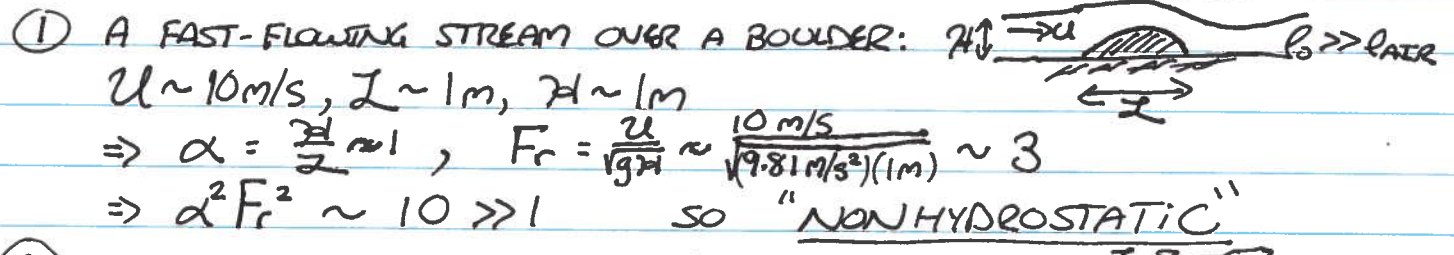 ① A FAST-FLOWING STREAM OVER A BOULDER: H ↕ → U ρ₀ >> ρ_AIR
U ~ 10 m/s, L ~ 1 m, H ~ 1 m L
⇒ α = H/L ~ 1, Fr = U/√(gH) ~ 10 m/s / √((9.81 m/s²)(1 m)) ~ 3
⇒ α² Fr² ~ 10 >> 1 so "NONHYDROSTATIC"